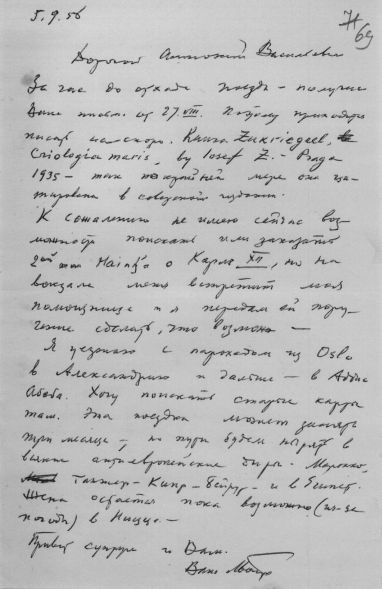 5.9.56
71
69
Дорогой Анатолий Васильевич
За час до отхода поезда – получил
Ваше письмо от 27.VIII. Поэтому приходится
писать на скоро. Книга Zukriegeel,
Criologia maris, by Iosef Z. – Praga
1935 – так по крайней мере она ци-
тирована в советской
К сожалению не имею сейчас воз-
можности поискать или заказать
о Карле XII, но на
вокзале меня встретит моя
помощница и я передам ей пору-
чение сделать, что возможно —
Я уезжаю с пароходом из Oslo
в Александрию и дальше – в Аддис
Абаба. Хочу поискать старые карты
там. Эта поездка может занять
три месяца –, по пути будем нырять в
всякие антиевропейские дыры – Марокко,
Танжер – Кипр – Бейрут – и в Египет.
Жена остается пока возможно (из-за
погоды) в Ницце. –
Привет супруге и Вам.
Ваш